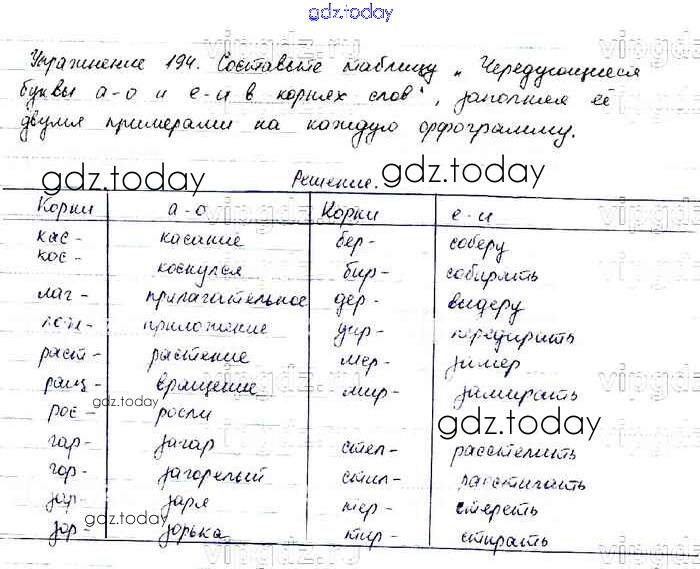 gdz.today
Упражнение 194. Составьте таблицу „Чередующиеся
буквы а-о и е-и в корнях слов", заполняя её
двумя примерами на каждую орфограмму.
gdz.today Решение. gdz.today
Корни а-о Корни е-и
кас- касание бер- соберу
кос- коснулся бир- собирать
лаг- прилагательное дер- выдеру
лож- приложение дир- передирать
раст- растение мер- замер
ращ- вращение мир- замирать
gdz.today
рос- росли gdz.today
гар- загар стел- расстелить
гор- загорелый стил- расстилать
зар- заря тер- стереть
gdz.today
зор- зорька тир- стирать
vipgdz.ru